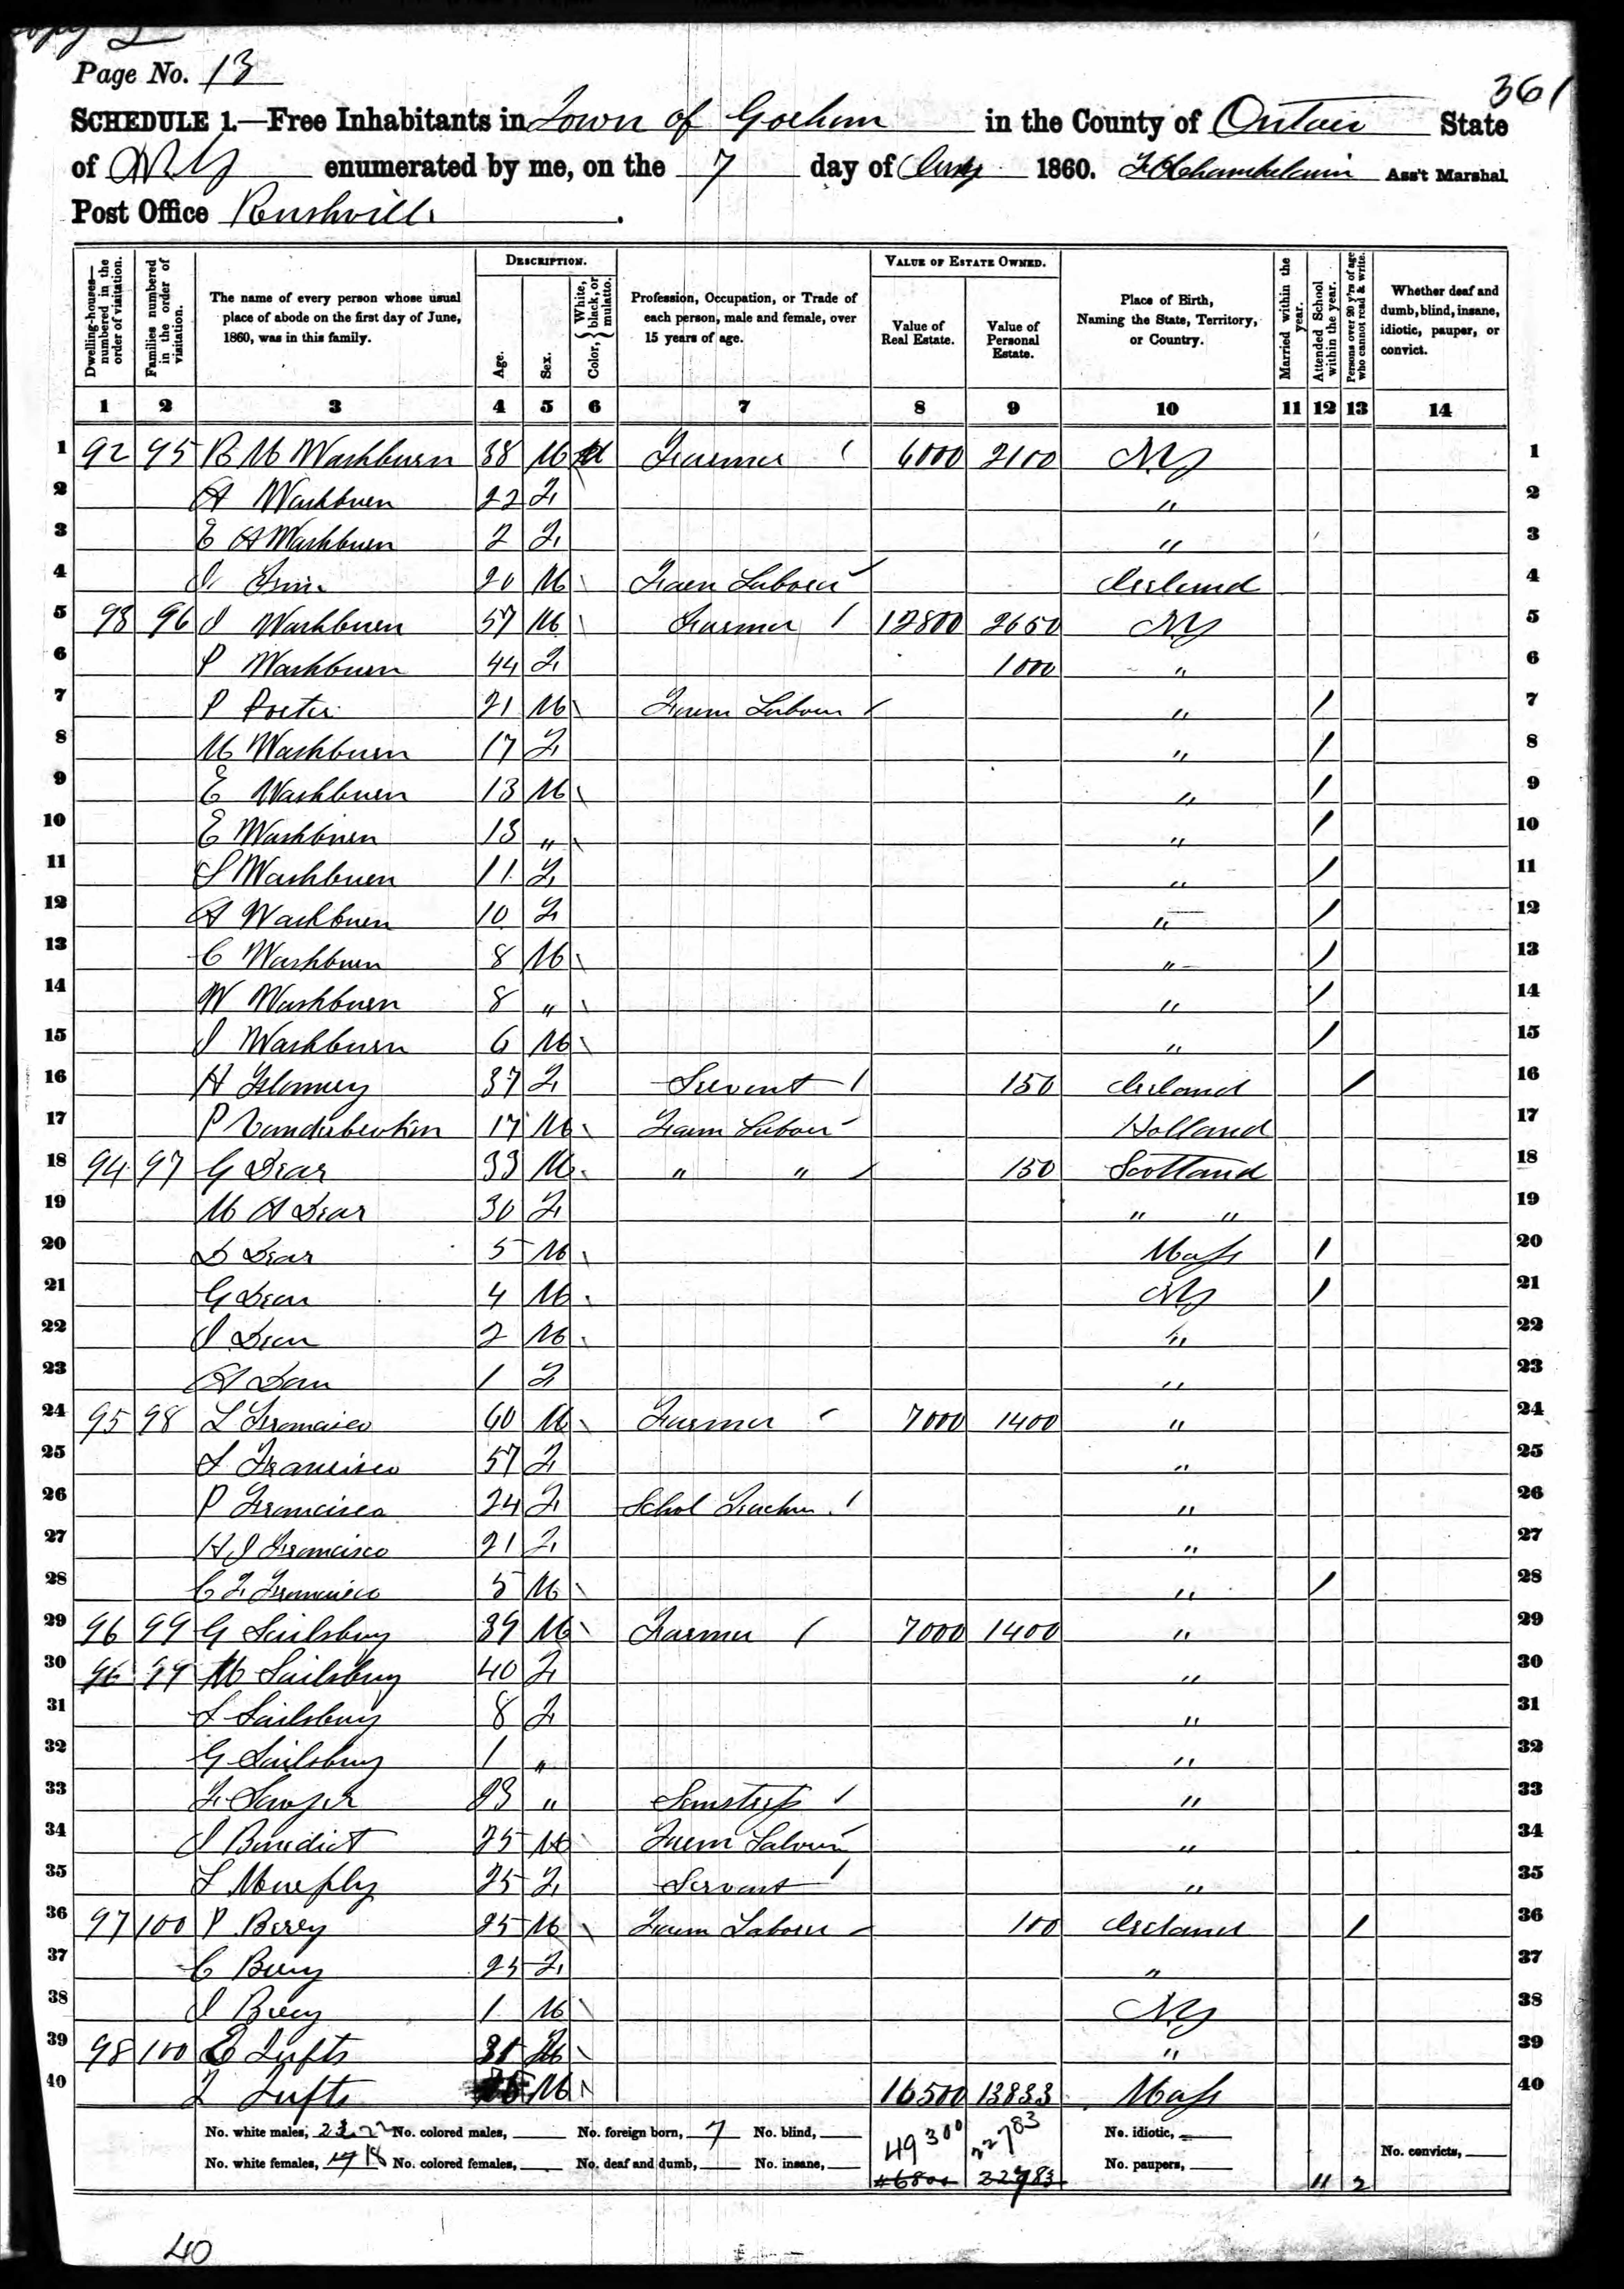 Copy 2
Page No. 13
361
SCHEDULE 1.—Free Inhabitants in Town of Gorham in the County of Ontari State
of N Y enumerated by me, on the 7 day of 1860. Chamberlain Ass't Marshal.
Post Office Rushvill
Dwelling-houses—numbered in the order of visitation.
Families numbered in the order of visitation.
The name of every person whose usual place of abode on the first day of June, 1860, was in this family.
DESCRIPTION.
Age.
Sex.
Color, { White, black, or mulatto.
Profession, Occupation, or Trade of each person, male and female, over 15 years of age.
VALUE OF ESTATE OWNED.
Value of Real Estate.
Value of Personal Estate.
Place of Birth, Naming the State, Territory, or Country.
Married within the year.
Attended School within the year.
Persons over 20 y'rs of age who cannot read & write.
Whether deaf and dumb, blind, insane, idiotic, pauper, or convict.
1 2 3 4 5 6 7 8 9 10 11 12 13 14
1 92 95 B M Washburn 38 M Farmer / 6000 2100 N Y 1
2 A Washburn 22 F " 2
3 E A Washburn 2 F " 3
4 20 M \ Farm Laborer Ireland 4
5 93 96 J Washburn 57 M \ Farmer / 12800 2650 N Y 5
6 P Washburn 44 F 1000 " 6
7 P Porter 21 M \ Farm Labour / " / 7
8 M Washburn 17 F " / 8
9 E Washburn 13 M \ " / 9
10 E Washburn 13 " \ " / 10
11 S Washburn 11 F " / 11
12 A Washburn 10 F " / 12
13 C Washburn 8 M \ " / 13
14 W Washburn 8 " \ " / 14
15 J Washburn 6 M \ " / 15
16 H 37 F Servent / 150 Ireland / 16
17 P 17 M \ Farm Labour Holland 17
18 94 97 G Dear 33 M " " / 150 Scotland 18
19 M A Dear 30 F " " 19
20 D Dear 5 M \ Mass / 20
21 G Dear 4 M N Y / 21
22 J Dear 2 M " 22
23 A Dear 1 F " 23
24 95 98 L Francisco 60 M \ Farmer 7000 1400 " 24
25 S Francisco 57 F " 25
26 P Francisco 24 F Schol Teacher / " 26
27 H J Francisco 21 F " 27
28 C F Francisco 5 M \ " / 28
29 96 99 G Sailsbury 39 M \ Farmer / 7000 1400 " 29
30 96 99 M Sailsbury 40 F " 30
31 S Sailsbury 8 F " 31
32 G Sailsbury 1 " " 32
33 F Sawyer 23 " Semstress / " 33
34 J Benidict 25 M \ Farm Labour " 34
35 L Murphy 25 F Servent / " 35
36 97 100 P Berry 25 M \ Farm Laborer 100 Ireland / 36
37 C Berry 25 F " 37
38 J Berry 1 M \ N Y 38
39 98 100 E Tufts 31 M \ " 39
40 Tufts M \ 16500 13833 Mass 40
No. white males, 23 22 No. colored males, No. foreign born, 7 No. blind, 49300 22783 No. idiotic,
No. white females, 17 18 No. colored females, No. deaf and dumb, No. insane, 46800 22783 No. paupers, 11 2 No. convicts,
40